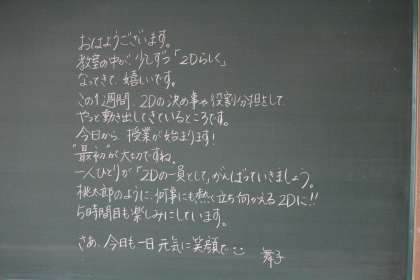 おはようございます。
教室の中が、少しずつ「2Dらしく」
なってきて、嬉しいです。
この1週間、2Dの決め事や役割分担をして
やっと動き出してきているところです。
今日から、授業が始まります!
"最初"が大切ですね。
一人ひとりが「2Dの一員として」がんばっていきましょう。
桃太郎のように、何事にも熱く立ち向かえる2Dに!!
5時間目も楽しみにしています。
さあ、今日も一日元気に笑顔で
舞子